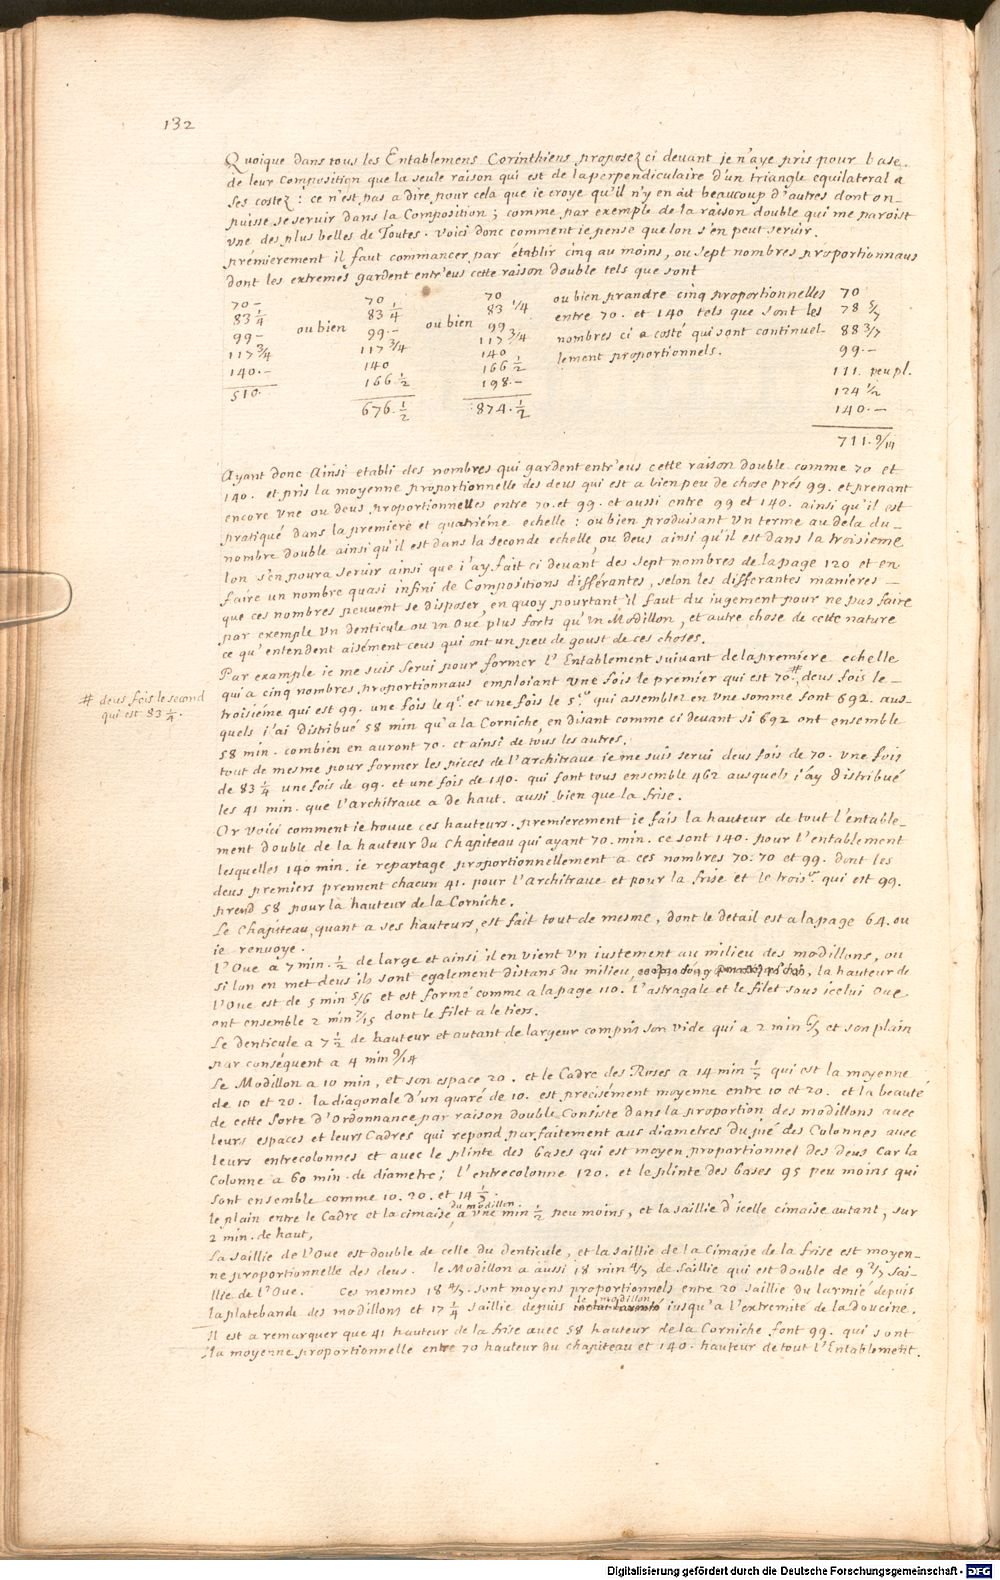 132
Quoique dans tous les Entablemens Corinthiens proposez ci devant je n'aye pris pour base
de leur Composition que la seule raison qui est de la perpendiculaire d'un triangle equilateral a
ses costez : ce n'est pas a dire pour cela que ie croye qu'il n'y en ait beaucoup d'autres dont on
puisse se seruir dans la Composition ; comme par exemple de la raison double qui me paroist
vne des plus belles de Toutes . Voici donc comment ie pense que lon s'en peut seruir .
premierement il faut commancer par établir cinq au moins , ou sept nombres proportionnaus
dont les extremes gardent entr'eus cette raison double tels que sont
70 –
83 1/4
99 –
117 3/4
140 . –
510 .
ou bien
70
83 1/4
99 . –
117 3/4
140
166 1/2
676 . 1/2
ou bien
70
83 1/4
99
117 3/4
140
166 1/2
198 . –
874 . 1/2
ou bien prandre cinq proportionnelles
entre 70 . et 140 tels que sont les
nombres ci a costé qui sont continuel-
lement proportionnels .
70
78 5/7
88 3/7
99 . –
111 . peu pl .
124 1/2
140 . –
711 . 9/14
Ayant donc Ainsi etabli des nombres qui gardent entr'eus cette raison double comme 70 et
140 . et pris la moyenne proportionnelle des deus qui est a bien peu de chose prés 99 . et prenant
encore vne ou deus proportionnelles entre 70 . et 99 . et aussi entre 99 et 140 . ainsi qu'il est
pratiqué dans la premiere et quatriéme echelle : ou bien produisant vn terme au dela du
nombre double ainsi qu'il est dans la seconde echelle , ou deus ainsi qu'il est dans la troisieme
lon s'en poura seruir ainsi que i'ay fait ci deuant des sept nombres de la page 120 et en
faire un nombre quasi infini de Compositions différantes , selon les differantes manieres
que ces nombres peuuent se disposer , en quoy pourtant il faut du iugement pour ne pas faire
par exemple vn denticule ou vn Oue plus forts qu'vn Modillon , et autre chose de cette nature
ce qu'entendent aisément ceus qui ont un peu de goust de ces choses .
Par example ie me suis serui pour former l'Entablement suiuant de la premiere echelle
qui a cinq nombres proportionnaus emploiant vne fois le premier qui est 70 .# deus fois le
# deus fois le second
qui est 83 1/4 .
troisiéme qui est 99 . une fois le 4e . et vne fois le 5e . qui assemblez en vne somme font 692 . aus-
quels i'ai distribué 58 min qu'a la Corniche , en disant comme ci deuant si 692 ont ensemble
58 min . combien en auront 70 . et ainsi de tous les autres .
tout de mesme pour former les pieces de l'Architraue ie me suis serui deus fois de 70 . vne fois
de 83 1/4 une fois de 99 . et une fois de 140 . qui font tous ensemble 462 ausquels i'áy distribué
les 41 min . que l'architraue a de haut . aussi bien que la frise .
Or voici comment ie trouue ces hauteurs . premierement je fais la hauteur de tout l'entable-
ment double de la hauteur du chapiteau qui ayant 70 . min . ce sont 140 . pour l'entablement
lesquelles 140 min . ie repartage proportionnellement a ces nombres 70 . 70 et 99 . dont les
deus premiers prennent chacun 41 . pour l'architraue et pour la frise et le trois.e qui est 99 .
prend 58 pour la hauteur de la Corniche .
Le Chapiteau , quant a ses hauteurs , est fait tout de mesme , dont le detail est a la page 64 . ou
ie renuoye .
l'Oue a 7 min . 1/2 de large et ainsi il en vient vn iustement au milieu des modillons , ou
si lon en met deus ils sont egalement distans du milieu , la hauteur de
l'Oue est de 5 min 5/6 et est formé comme a la page 110 . l'astragale et le filet sous icelui Oue
ont ensemble 2 min 7/15 dont le filet a le tiers .
Le denticule a 7 1/2 de hauteur et autant de largeur compris son vide qui a 2 min 6/7 et son plain
par conséquent a 4 min 9/14
Le Modillon a 10 min , et son espace 20 . et le Cadre des Roses a 14 min 1/7 qui est la moyenne
de 10 et 20 . la diagonale d'un quaré de 10 . est precisément moyenne entre 10 et 20 . et la beauté
de cette sorte d'Ordonnance par raison double Consiste dans la proportion des modillons auec
leurs espaces et leurs Cadres qui repond parfaitement aus diametres du pié des Colonnes auec
leurs entrecolonnes et auec le plinte des bases qui est moyen proportionnel des deus car la
Colonne a 60 min . de diametre ; l'entrecolonne 120 . et le plinte des bases 95 peu moins qui
sont ensemble comme 10 . 20 . et 14 1/7 .
le plain entre le Cadre et la cimaise du modillon , a vne min 1/2 peu moins , et la saillie d'icelle cimaise autant , sur
2 min . de haut ,
La saillie de l'Oue est double de celle du denticule , et la saillie de la Cimaise de la frise est moyen-
ne proportionnelle des deus . le Modillon a aussi 18 min 4/7 de saillie qui est double de 9 2/7 sai-
llie de l'Oue . Ces mesmes 18 4/7 . sont moyens proportionnels entre 20 saillie du larmié depuis
la platebande des modillons et 17 1/4 saillie depuis le modillon iusqu'a l'extremité de la doucine .
Il est a remarquer que 41 hauteur de la frise auec 58 hauteur de la Corniche font 99 . qui sont
la moyenne proportionnelle entre 70 hauteur du chapiteau et 140 . hauteur de tout l'Entablement .
Digitalisierung gefördert durch die Deutsche Forschungsgemeinschaft - DFG